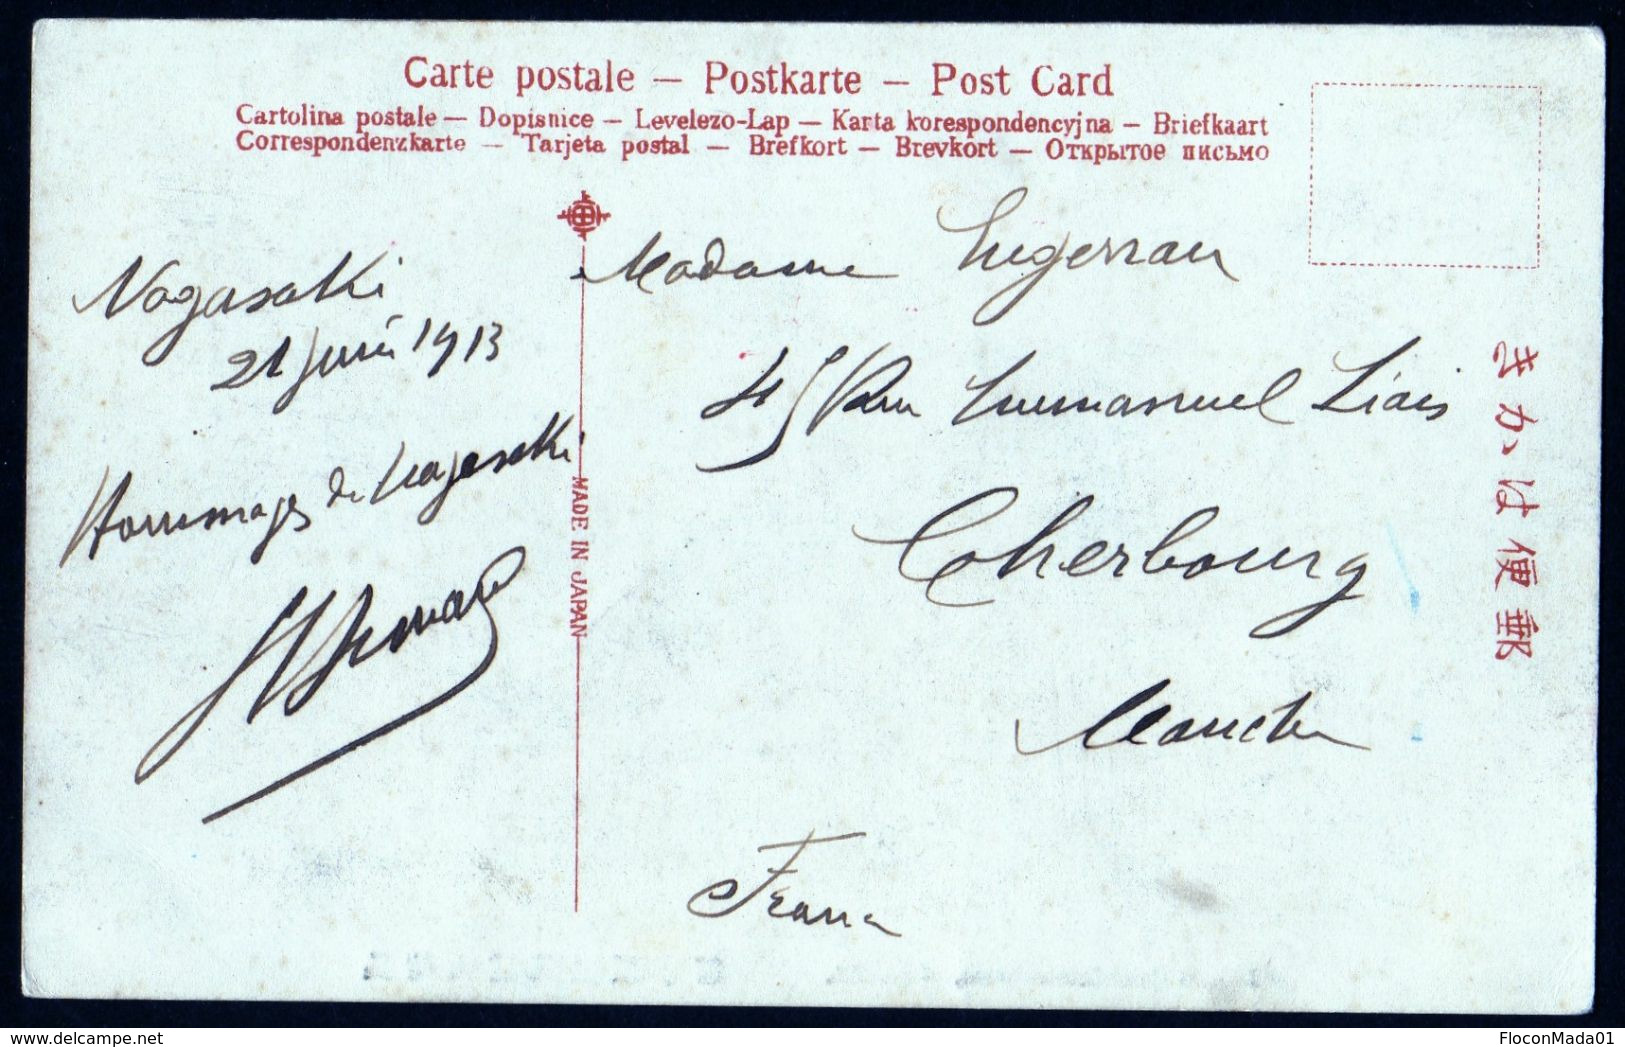 Carte postale — Postkarte — Post Card
Cartolina postale — Dopisnice — Levelezo-Lap — Karta korespondencyjna — Briefkaart
Correspondenzkarte — Tarjeta postal — Brefkort — Brevkort — Открытое письмо
Nagasaki
21 juin 1913
Hommages de Nagasaki
MADE IN JAPAN
Madame
45 Rue Emmanuel Liais
Cherbourg
Manche
France
きかは便郵
FloconMada01